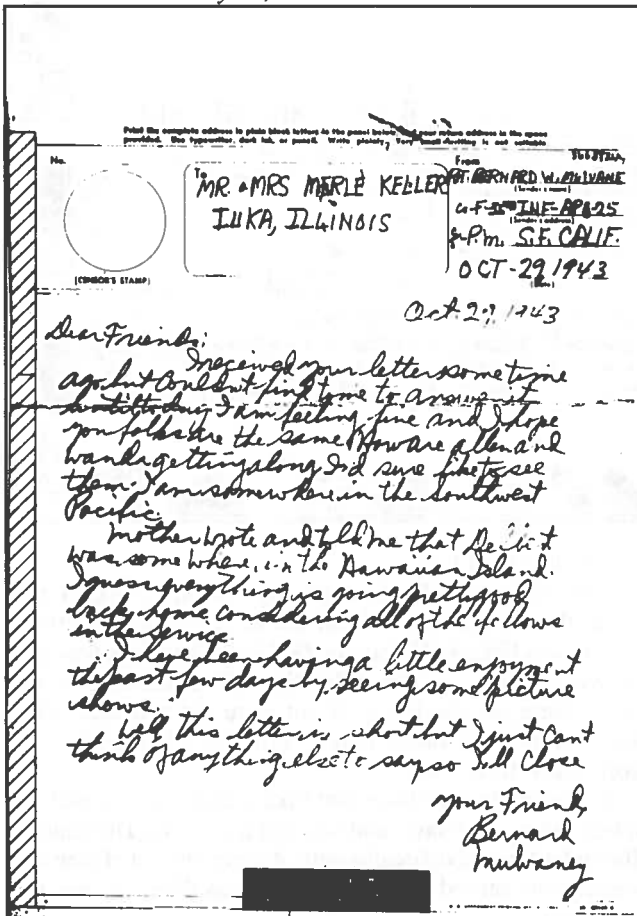 Print the complete address in plain block letters in the panel below, your return address in the space
provided. Use typewriter, dark ink, or pencil. Write plainly. Very small writing is not suitable
No.
To
MR. & MRS MERLE KELLER
IUKA, ILLINOIS
From
PVT. BERNARD W.
(Sender's name)
INF-APO-25
(Sender's address)
P.M. S.F. CALIF.
OCT-29 1943
(CENSOR'S STAMP)
Oct 29 1943
Dear Friends:
I received your letter sometime
ago but couldn't find time to answer it
until today. I am feeling fine and I hope
you folks are the same. How are allen and
wanda getting along I'd sure like to see
them. I am somewhere in the southwest
Pacific.
Mother wrote and told me that
was some where in the Hawaiian Island.
I guess everything is going pretty good
back home considering all of the fellows
in the service.
I have been having a little enjoyment
the past few days by seeing some picture
shows.
Well this letter is short but I just cant
think of anything else to say so I'll close
your Friend,
Bernard
Mulvaney